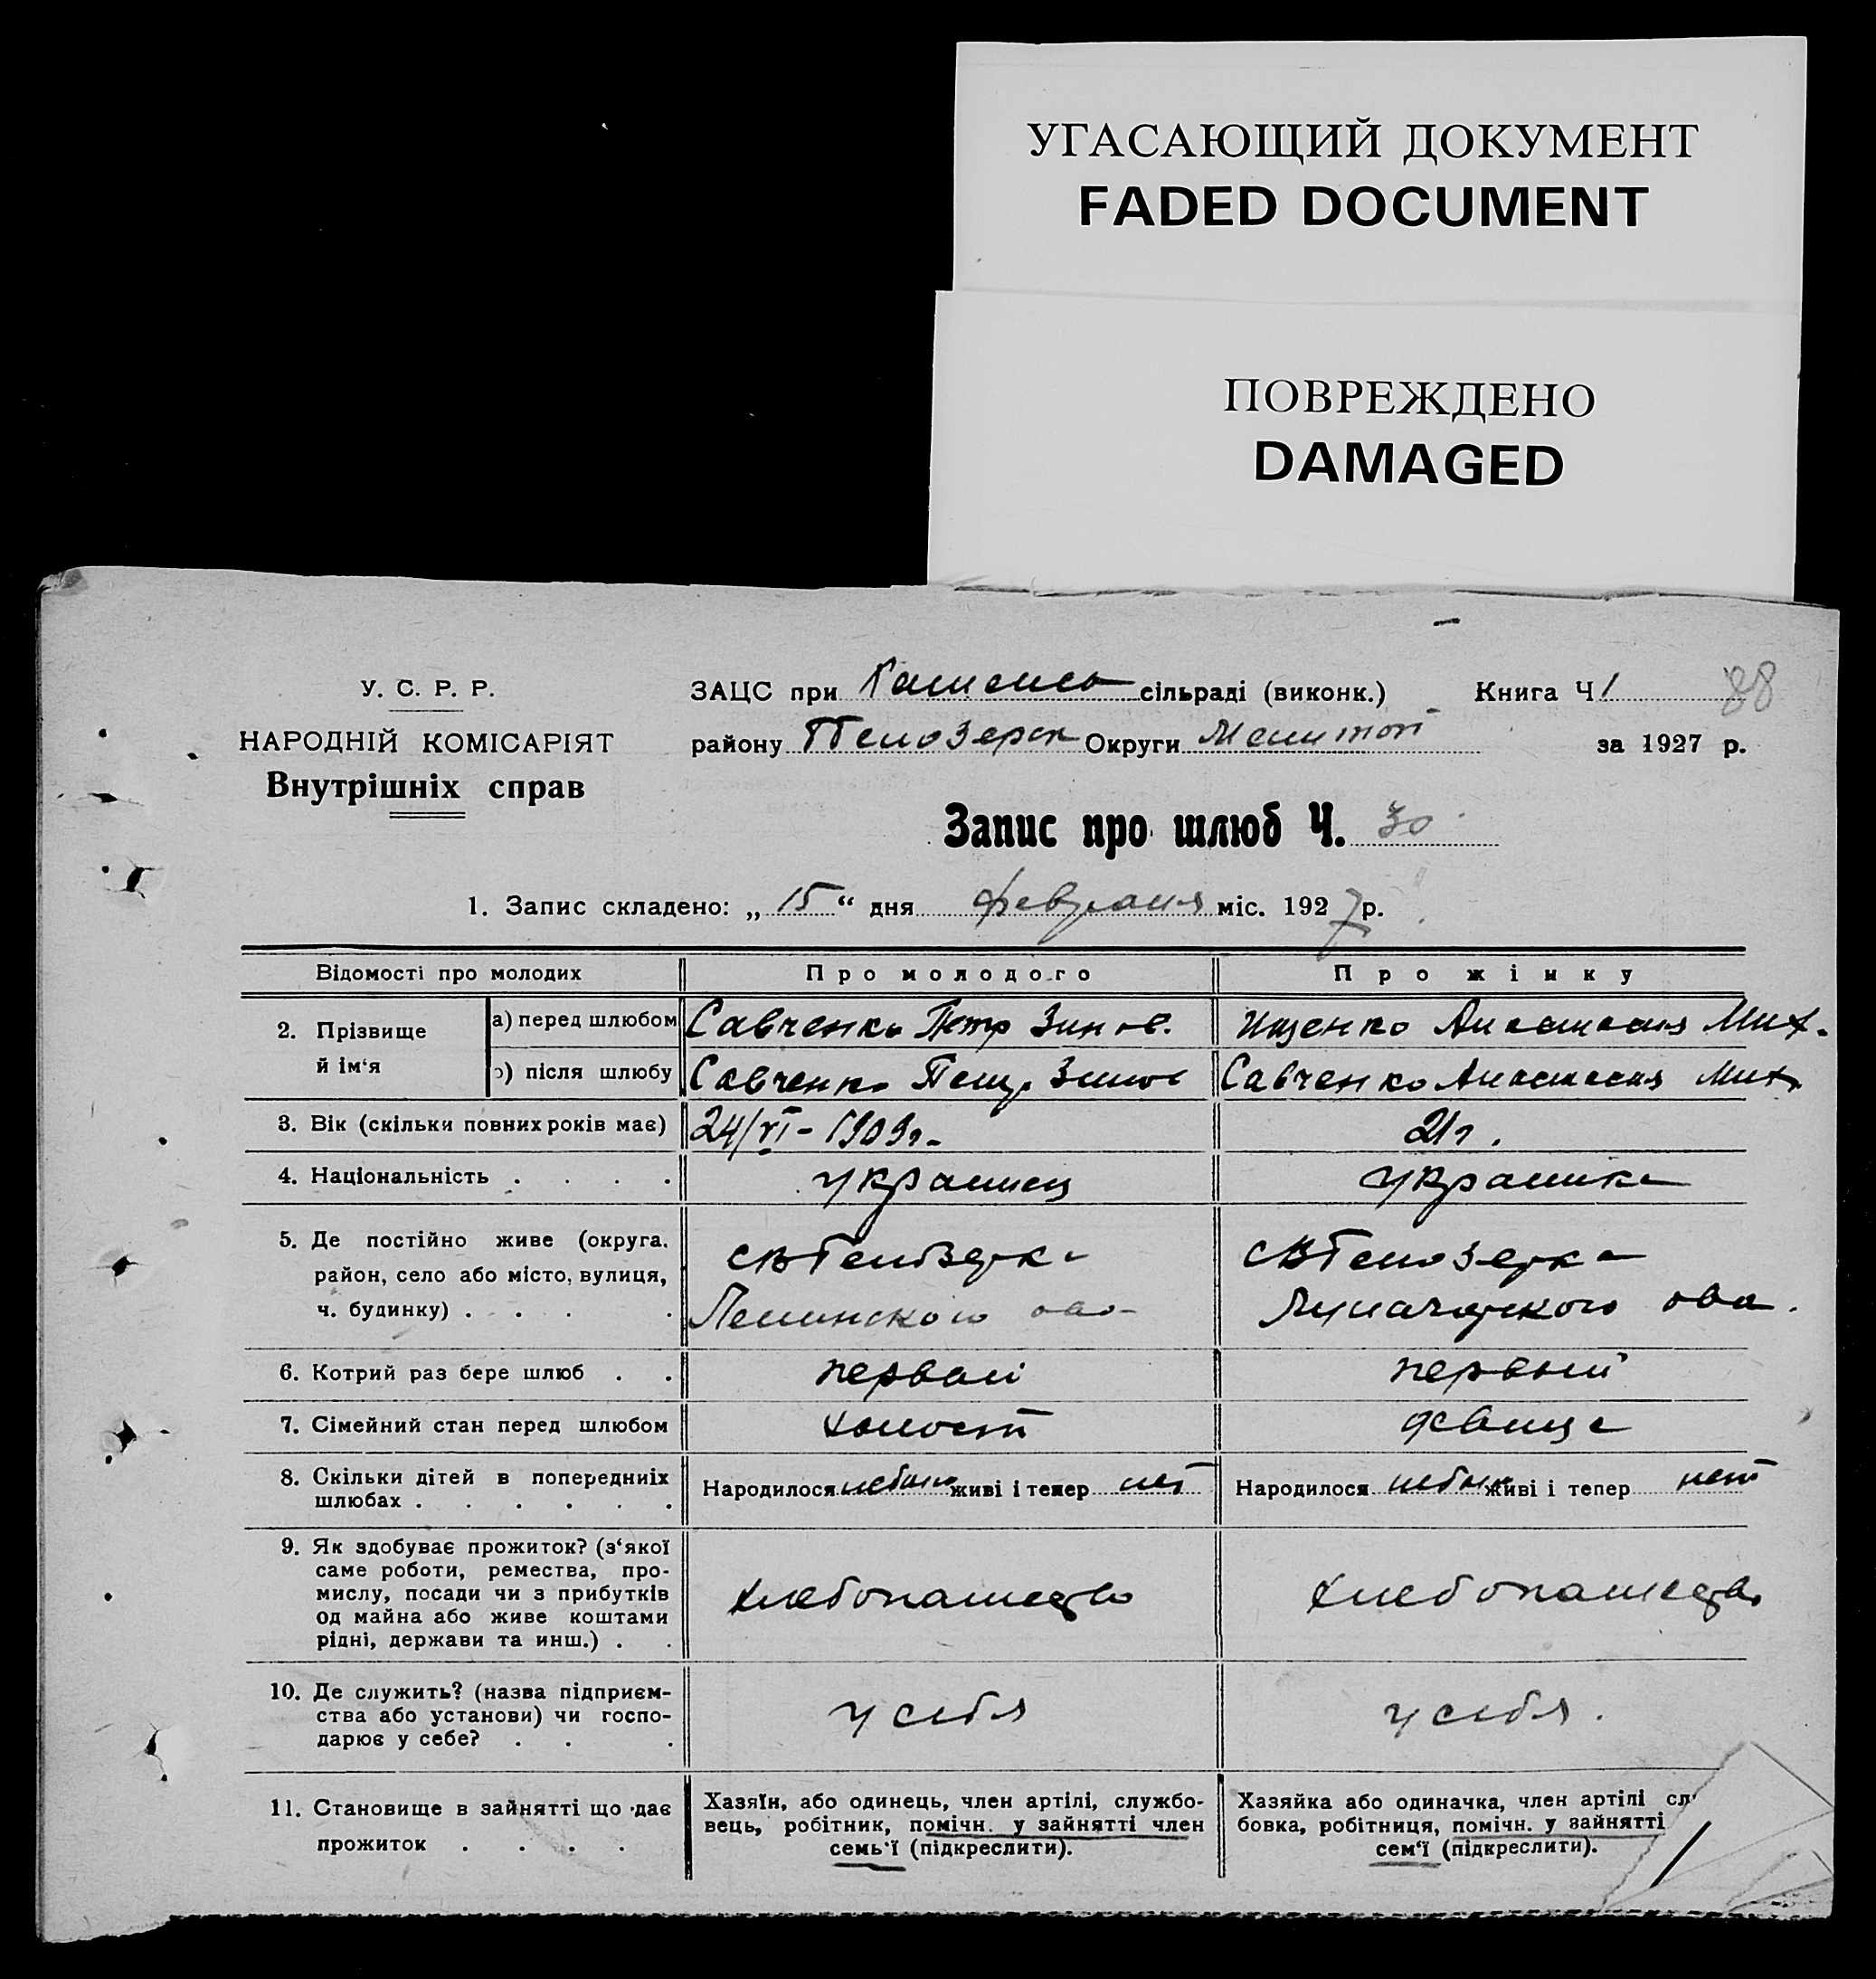 УГАСАЮЩИЙ ДОКУМЕНТ
FADED DOCUMENT
ПОВРЕЖДЕНО
DAMAGED
У. С. Р. Р.
НАРОДНІЙ КОМІСАРІЯТ
Внутрішніх справ
ЗАЦС при сільраді (виконк.) Книга Ч 1 88
району Округи Мелитоп за 1927 р.
Запис про шлюб Ч. 30
1. Запис складено: „ 15 “ дня февраля міс. 1927 р.
Відомості про молодих
Про молодого
Про жінку
2. Прізвище й ім‘я
а) перед шлюбом
Савченко Петр Зинов.
Ищенко Анастасия Мих.
б) після шлюбу
Савченко Петр Зинов
Савченко Анастасия Мих.
3. Вік (скільки повних років має)
24/VI - 1909 г.
21 г.
4. Національність . . . .
украинец
украинка
5. Де постійно живе (округа,
район, село або місто, вулиця,
ч. будинку) . . . .
Ленинского
Луначарского
6. Котрий раз бере шлюб . .
первый
первый
7. Сімейний стан перед шлюбом
холост
девица
8. Скільки дітей в попередниіх
шлюбах . . . . . .
Народилося небыло живі і тепер нет
Народилося небыло живі і тепер нет
9. Як здобуває прожиток? (з‘якої
саме роботи, ремества, про-
мислу, посади чи з прибутків
од майна або живе коштами
рідні, держави та инш.) . .
хлебопашество
хлебопашество
10. Де служить? (назва підприєм-
ства або установи) чи госпо-
дарює у себе? . . .
у себя
у себя.
11. Становище в зайнятті що дає
прожиток . . . .
Хазяїн, або одинець, член артілі, службо-
вець, робітник, помічн. у зайнятті член
семь‘ї (підкреслити).
Хазяйка або одиначка, член артілі сл
бовка, робітниця, помічн. у зайнятті
сем‘ї (підкреслити).